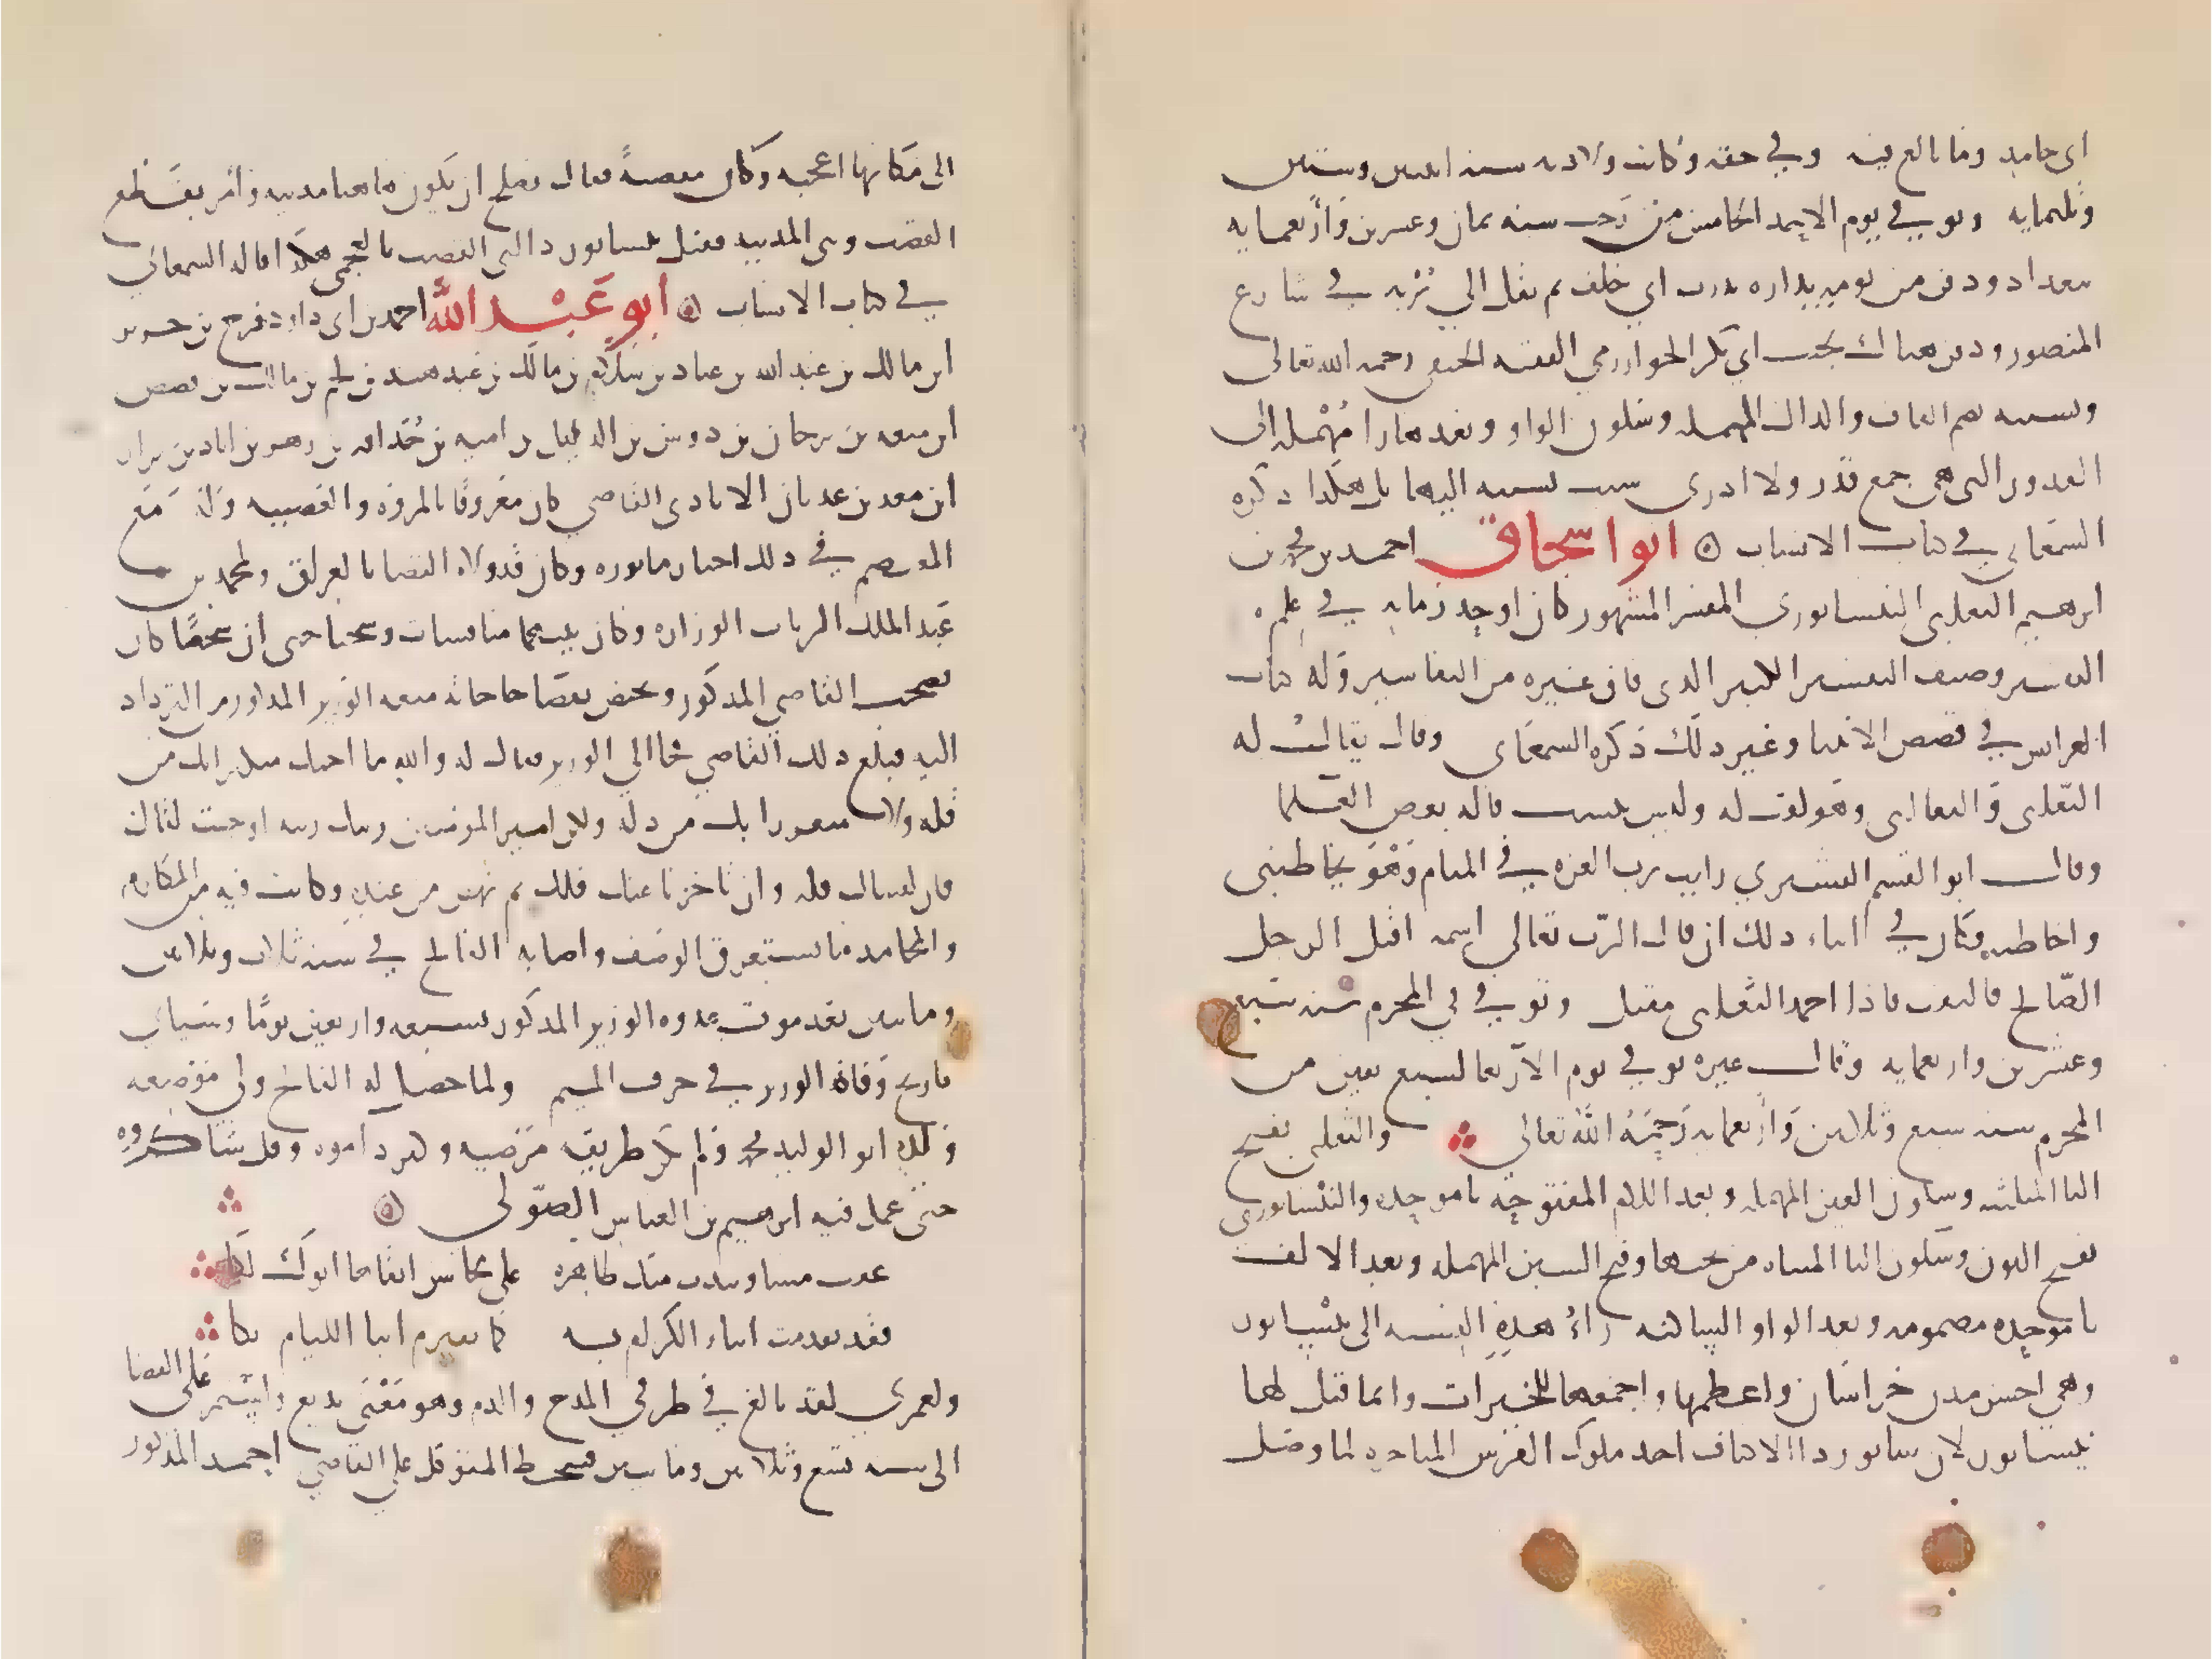 ابي حامد وما بالغ فيه وفي حقه وكانت ولادته سنه اثنتين وستين
وثلثمايه وتوفي في يوم الاحد الخامس من رجب سنه ثمان وعشرين وأربعمايه
ببغداد ودفن من يوميه بداره بدرب ابي خلف ثم نقل الي تربه في شارع
المنصور ودفن هناك بجنب ابي بكر الخوارزمي الفقيه الحنفي رحمه الله تعالى
ونسبته بضم القاف والدال المهمله وسكون الواو وبعدها را مُهْمله الى
القدور التي هي جمع قدر ولا ادري سبب نسبته اليها بل هكذا ذكره
السمعاني في كتاب الانساب ابو اسحاق احمد بن محمد بن
ابرهيم الثعلبي النيسابوري المفسر المشهور كان اوحد زمانه في علم
التفسير وصنف التفسير الكبير الذي فاق غيره من التفاسير وله كتاب
العرايس في قصص الانبيا وغير ذلك ذكره السمعاني وقال يقال له
الثعلبي والثعالبي وهو لقب له وليس بنسب قاله بعض العلما
وقال ابو القسم القشيري رايت رب العزه في المنام وَهْوَ يخاطبني
واخاطبه فكان في اثناء ذلك ان قال الرّب تعالى اسمه اقبل الرجل
الصّالح فالتفت فاذا احمد الثعلبي مقبل وتوفي في المحرم سنه سبع
وعشرين واربعمايه وقال غيره توفي يوم الاربعا لسبع بقين من
المحرم سنه سبع وثلاثين وأربعمايه رَحِمَهُ اللهُ تعالى والثعلبي بفتح
الثا المثلثه وسكون العين المهمله وبعد اللام المفتوحه با موحده والنيْسابوري
بفتح النون وسكون اليا المثناه من تحتها وفتح السين المهمله وبعد الالف
با موحده مضمومه وبعد الواو الساكنه راءُ هذه النسبه الى نيْسابور
وهي احسن مدن خراسان واعظمها واجمعها للخيرات وانما قيل لها
نيسابور لان سابور ذا الاكتاف احد ملوك الفرس المتاخره لما وصل
الى مكانها اعجبه وكان مقصبةً فقال يصلح ان يكون هاهنا مدينه وامر بقطع
القصب وبنى المدينه فقيل نيسابور والني القصب بالعجمي هكذا قاله السمعاني
في كتاب الانساب ابو عَبْد اللهُ احمد بن ابي داود فرج بن جرير
ابن مالك بن عبد الله بن عباد بن سلام بن مالك بن عبد هند بن لخم بن مالك بن قنص
ابن منعه بن برجان بن دوس بن الديل بن اميه بن حُذافه بن زهر بن اياد بن نزار
ابن معد بن عدنان الايادي القاضي كان مَعْروفًا بالمروه والعصبيه وله مَعَ
المعتصم في ذلك اخبار ماثوره وكان قد ولاه القضا بالعراق ولمحمد بن
عَبد الملك الزيات الوزاره وكان بينهما منافسات وشحنا حتى ان شخصًا كان
يصحب القاضي المذكور ويختص بقضا حاجاته منعه الوزير المذكور من الترداد
اليه فبلغ ذلك القاضي فجا الي الوزير فقال له والله ما اجيك متكثرا بك من
قله ولا متعززا بك من ذله ولكن امير المومنين رتبك رتبه اوجبت لقاك
فان لقيناك فله وان تاخرنا عنك فلك ثم نهض من عنده وكانت فيه من المكارم
والمحامد ما يستغرق الوصف واصابه الفالج في سنه ثلاث وثلاثين
وماىتين بعد موت عدوه الوزير المذكور بسبعه واربعين يومًا وسياتي
تاريخ وَفاة الوزير في حرف الميم ولما حصل له الفالج ولي موضعه
ولده ابو الوليد محمد ولم تكن طريقه مَرْضيه وكثر ذاموه وقل شاكروه
حتى عمل فيه ابرهيم بن العباس الصّولي
عفت مساو تبدت منك ظاهره على محاسن ابقاها ابوك لَكا
فقد تقدمت ابناء الكرام به كما تقدم ابنا الليام بكا
ولعمري لقد بالغ في طرفي المدح والذم وهو مَعْنى بديع واستمر على القضا
الى سنه تسع وثلاثين وماىتين فسخط المتوكل على القاضي احمد المذكور